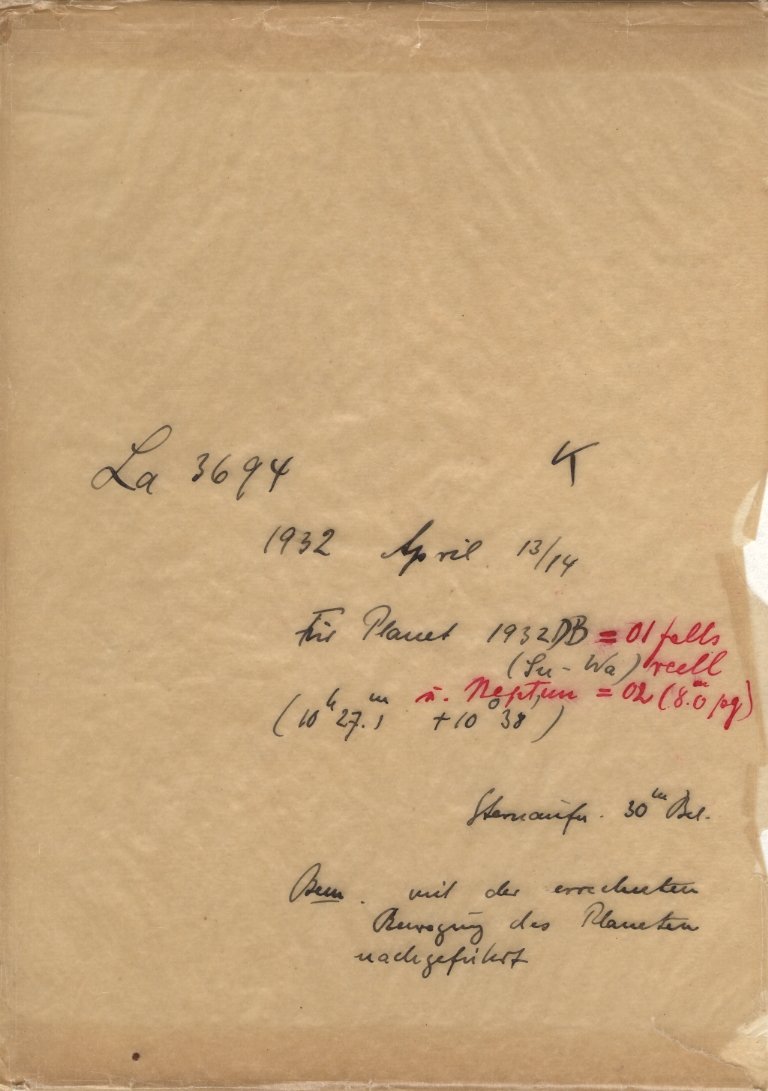 La 3694 K
1932 April 13/14
Für Planet 1932 DB = 01 falls
(Su - Wa) reell
u. Neptun = 02 (8.ᵐ0 pg)
(10ʰ 27.ᵐ1 +10° 38')
Sternaufn. 30ᵐ Bel.
Bem. mit der errechneten
Bewegung des Planeten
nachgeführt